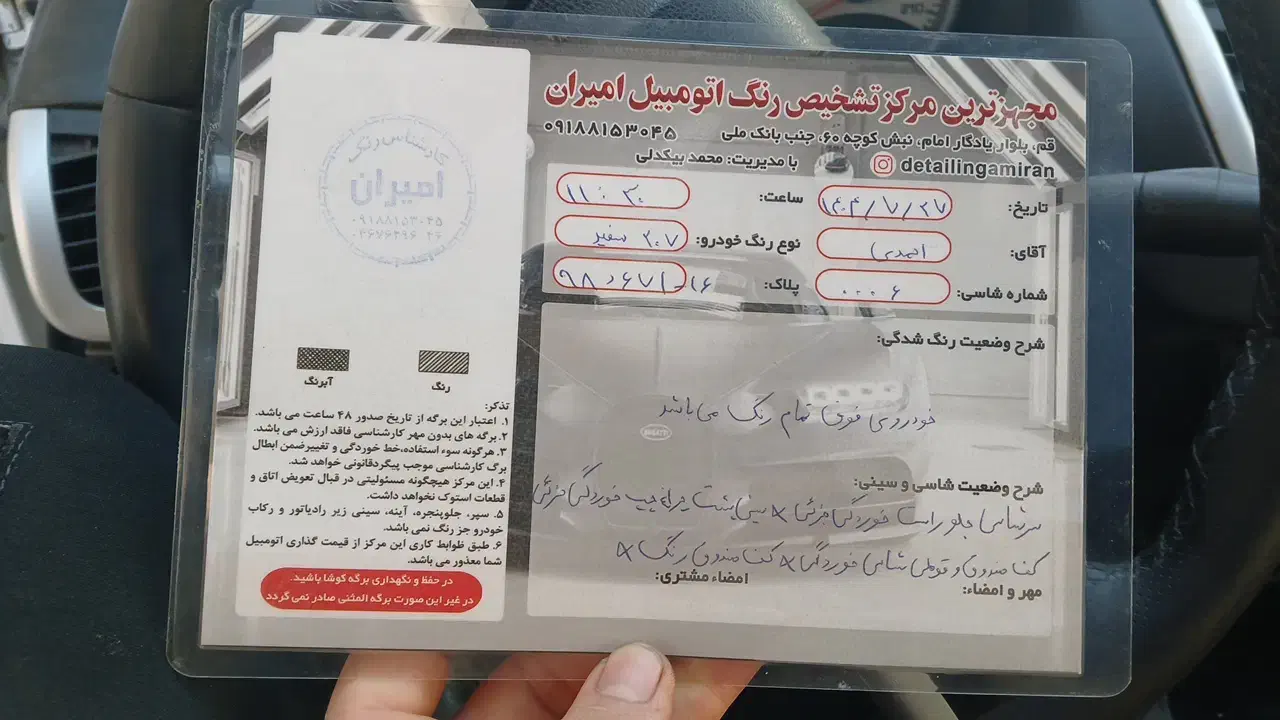 مجهزترین مرکز تشخیص رنگ اتومبیل امیران
قم، بلوار یادگار امام، نبش کوچه ۶۰، جنب بانک ملی ۰۹۱۸۸۱۵۳۰۴۵
detailingamiran با مدیریت: محمد بیکدلی
تاریخ: ۱۴۰۴/۷/۲۷ ساعت: ۱۱:۳۰
آقای: احمدی نوع رنگ خودرو: ۲۰۷ سفید
شماره شاسی: ۰۰۰۶ پلاک:
شرح وضعیت رنگ شدگی:
خودروی فوق تمام رنگ می باشد
شرح وضعیت شاسی و سینی:
سرشاسی جلو راست خوردگی جزئی * سینی پشت چراغ چپ خوردگی جزئی
کف صندوق و قولی شاسی خوردگی * کف صندوق رنگ *
مهر و امضاء: امضاء مشتری:
کارشناس رنگ
امیران
۰۹۱۸۸۱۵۳۰۴۵
رنگ آبرنگ
تذکر:
۱. اعتبار این برگه از تاریخ صدور ۴۸ ساعت می باشد.
۲. برگه های بدون مهر کارشناسی فاقد ارزش می باشد.
۳. هرگونه سوء استفاده،خط خوردگی و تغییرضمن ابطال
برگ کارشناسی موجب پیگردقانونی خواهد شد.
۴. این مرکز هیچگونه مسئولیتی در قبال تعویض اتاق و
قطعات استوک نخواهد داشت.
۵. سپر، جلوپنجره، آینه، سینی زیر رادیاتور و رکاب
خودرو جز رنگ نمی باشد.
۶. طبق ظوابط کاری این مرکز از قیمت گذاری اتومبیل
شما معذور می باشد.
در حفظ و نگهداری برگه کوشا باشید.
در غیر این صورت برگه المثنی صادر نمی گردد